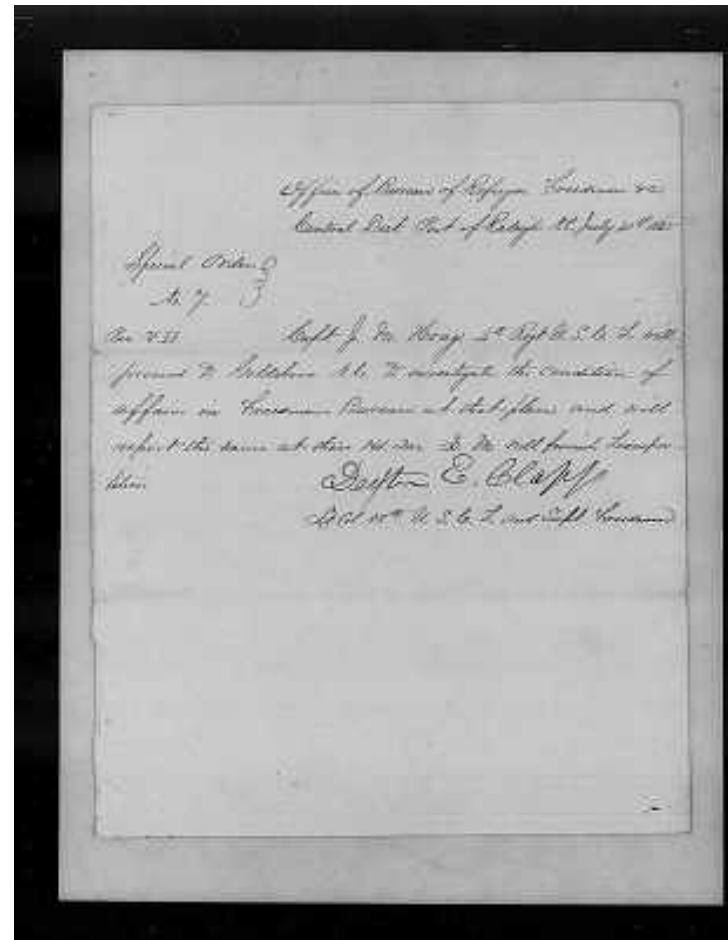 Office of Bureau of Refugee Freedmen &c
Central Dist Post of Raleigh N.C. July 20th 1865
Special Order
No 7
Capt J. M. Hoag 4th Regt U. S. C. T. will
proceed to Goldsboro N.C. to investigate the condition of
affairs in Freedmen Bureau at that place and will
report the same at these Hd. Qrs. Q. M. will furnish transpor
tation
Dexter E. Clapp
Lt Col 38th U. S. C. T. and Supt Freedmen